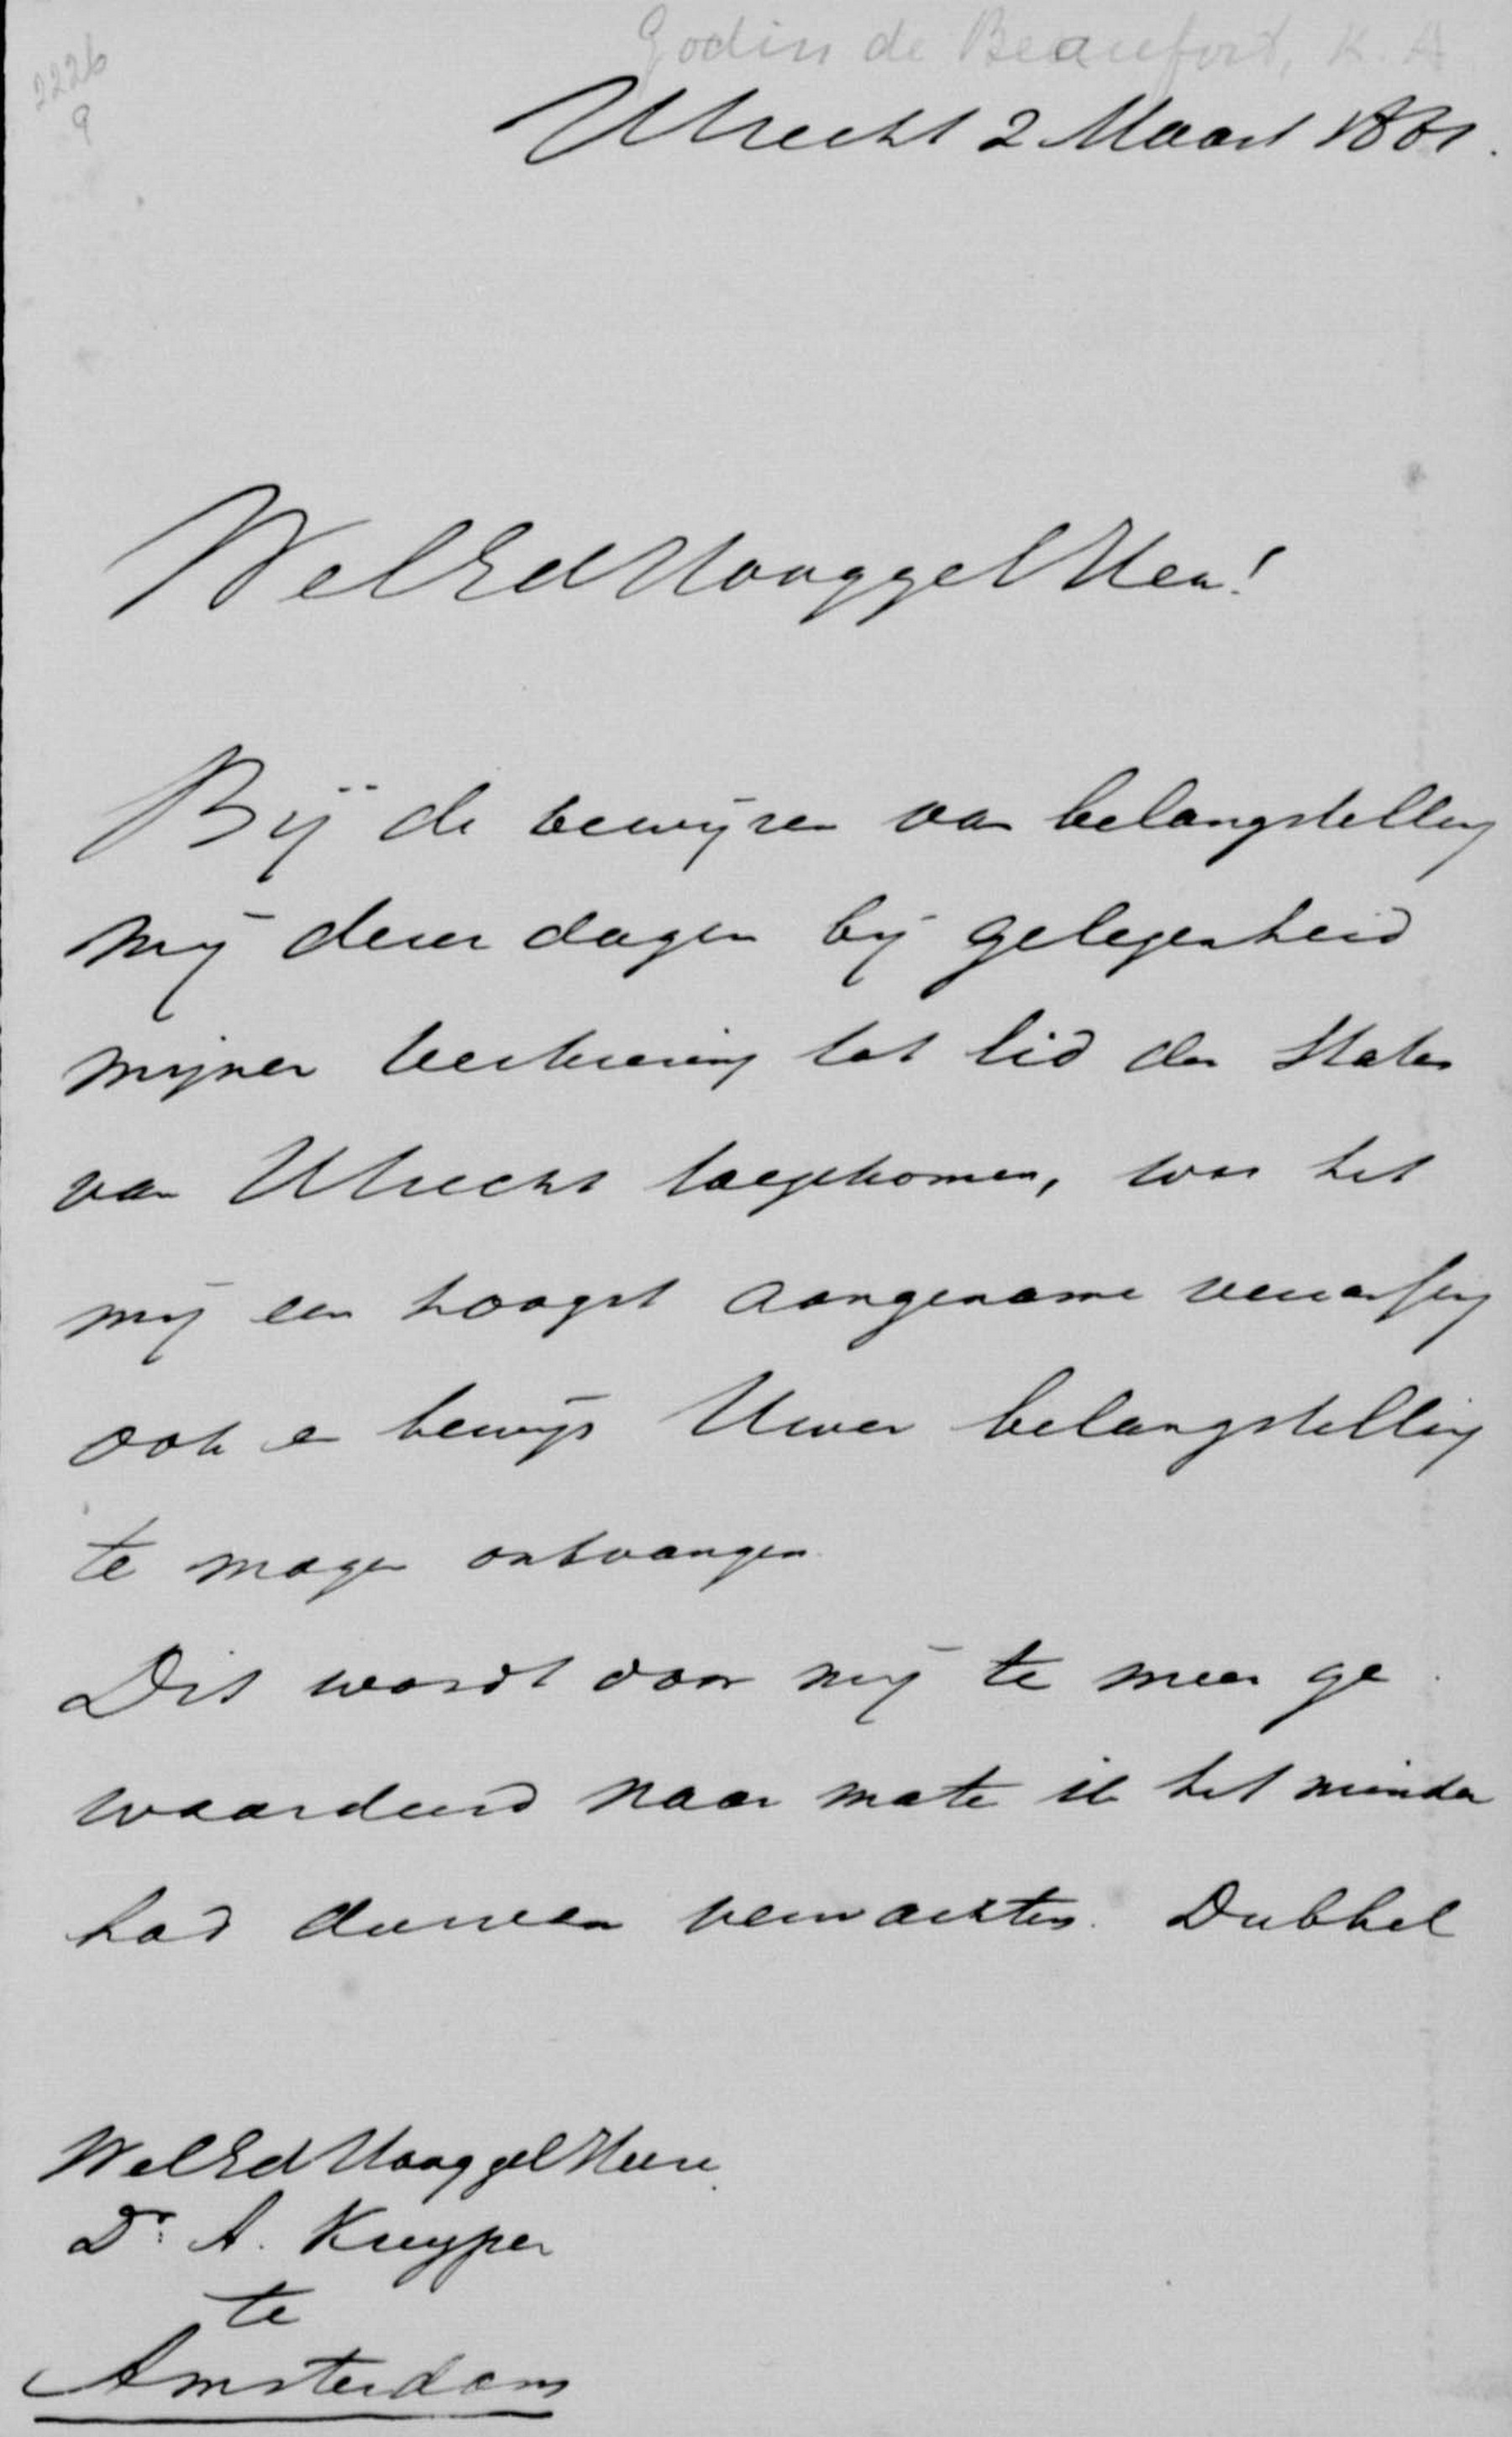 2226
9
Godin de Beaufort, K. A
Utrecht 2 Maart 1881.
WelEdHooggel Heer!
Bij de bewijzen van belangstelling
mij dezer dagen bij gelegenheid
mijner verkiezing tot lid der Staten
van Utrecht toegekomen, was het
mij een hoogst aangename verrassing
ook een bewijs Uwer belangstelling
te mogen ontvangen.
Dit wordt door mij te meer ge
waardeerd naar mate ik het minder
had durven verwachten. Dubbel
WelEdHooggel Heere
Dr. A. Kuyper
te
Amsterdam